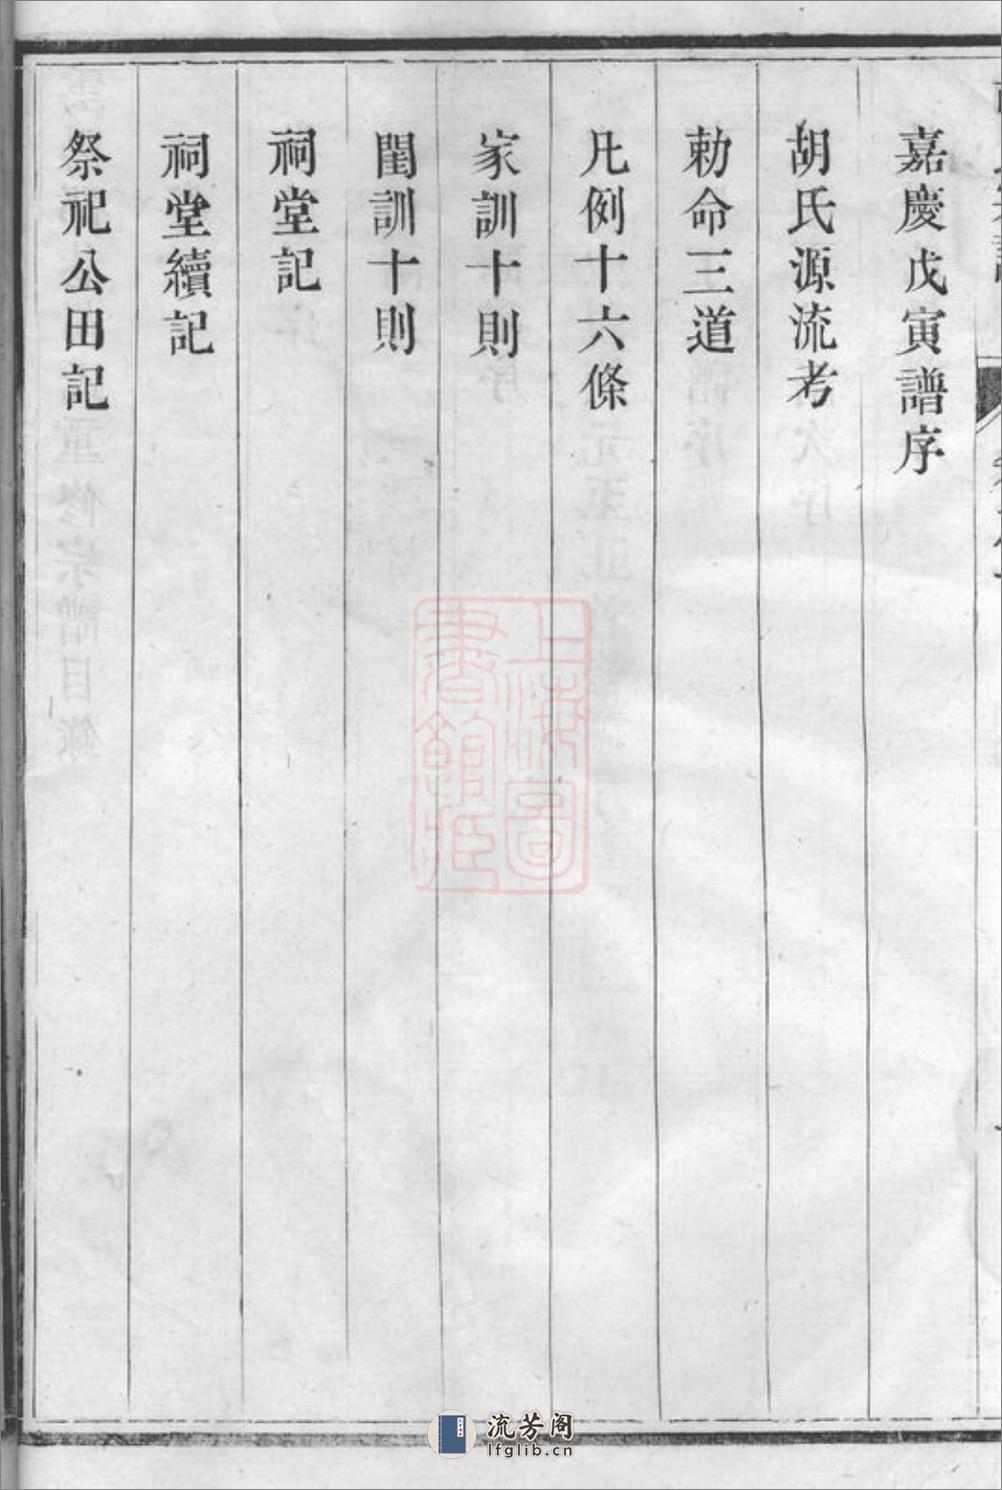 嘉慶戊寅譜序
胡氏源流考
勅命三道
凡例十六條
家訓十則
閨訓十則
祠堂記
祠堂續記
祭祀公田記
上海圖
書館藏
流芳阁
lfglib.cn